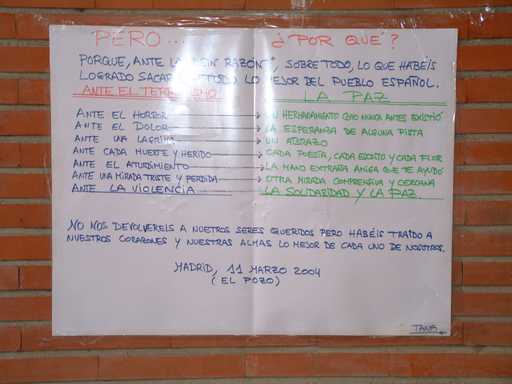 PERO... ¿POR QUÉ?
PORQUE, ANTE LA "SIN RAZÓN", SOBRE TODO, LO QUE HABÉIS
LOGRADO SACAR LO MEJOR DEL PUEBLO ESPAÑOL.
ANTE EL TERRORISMO LA PAZ
ANTE EL HORROR UN HERMANAMIENTO COMO NUNCA ANTES EXISTIÓ
ANTE EL DOLOR LA ESPERANZA DE ALGUNA PISTA
ANTE UNA LÁGRIMA UN ABRAZO
ANTE CADA MUERTE Y HERIDO CADA POESÍA, CADA ESCRITO Y CADA FLOR
ANTE EL ATURDIMIENTO LA MANO EXTRAÑA AMIGA QUE TE AYUDÓ
ANTE UNA MIRADA TRISTE Y PERDIDA OTRA MIRADA COMPRENSIVA Y CERCANA
ANTE LA VIOLENCIA LA SOLIDARIDAD Y LA PAZ
NO NOS DEVOLVEREIS A NUESTROS SERES QUERIDOS PERO HABÉIS TRAÍDO A
NUESTROS CORAZONES Y NUESTRAS ALMAS LO MEJOR DE CADA UNO DE NOSOTROS.
MADRID, 11 MARZO 2004
(EL POZO)